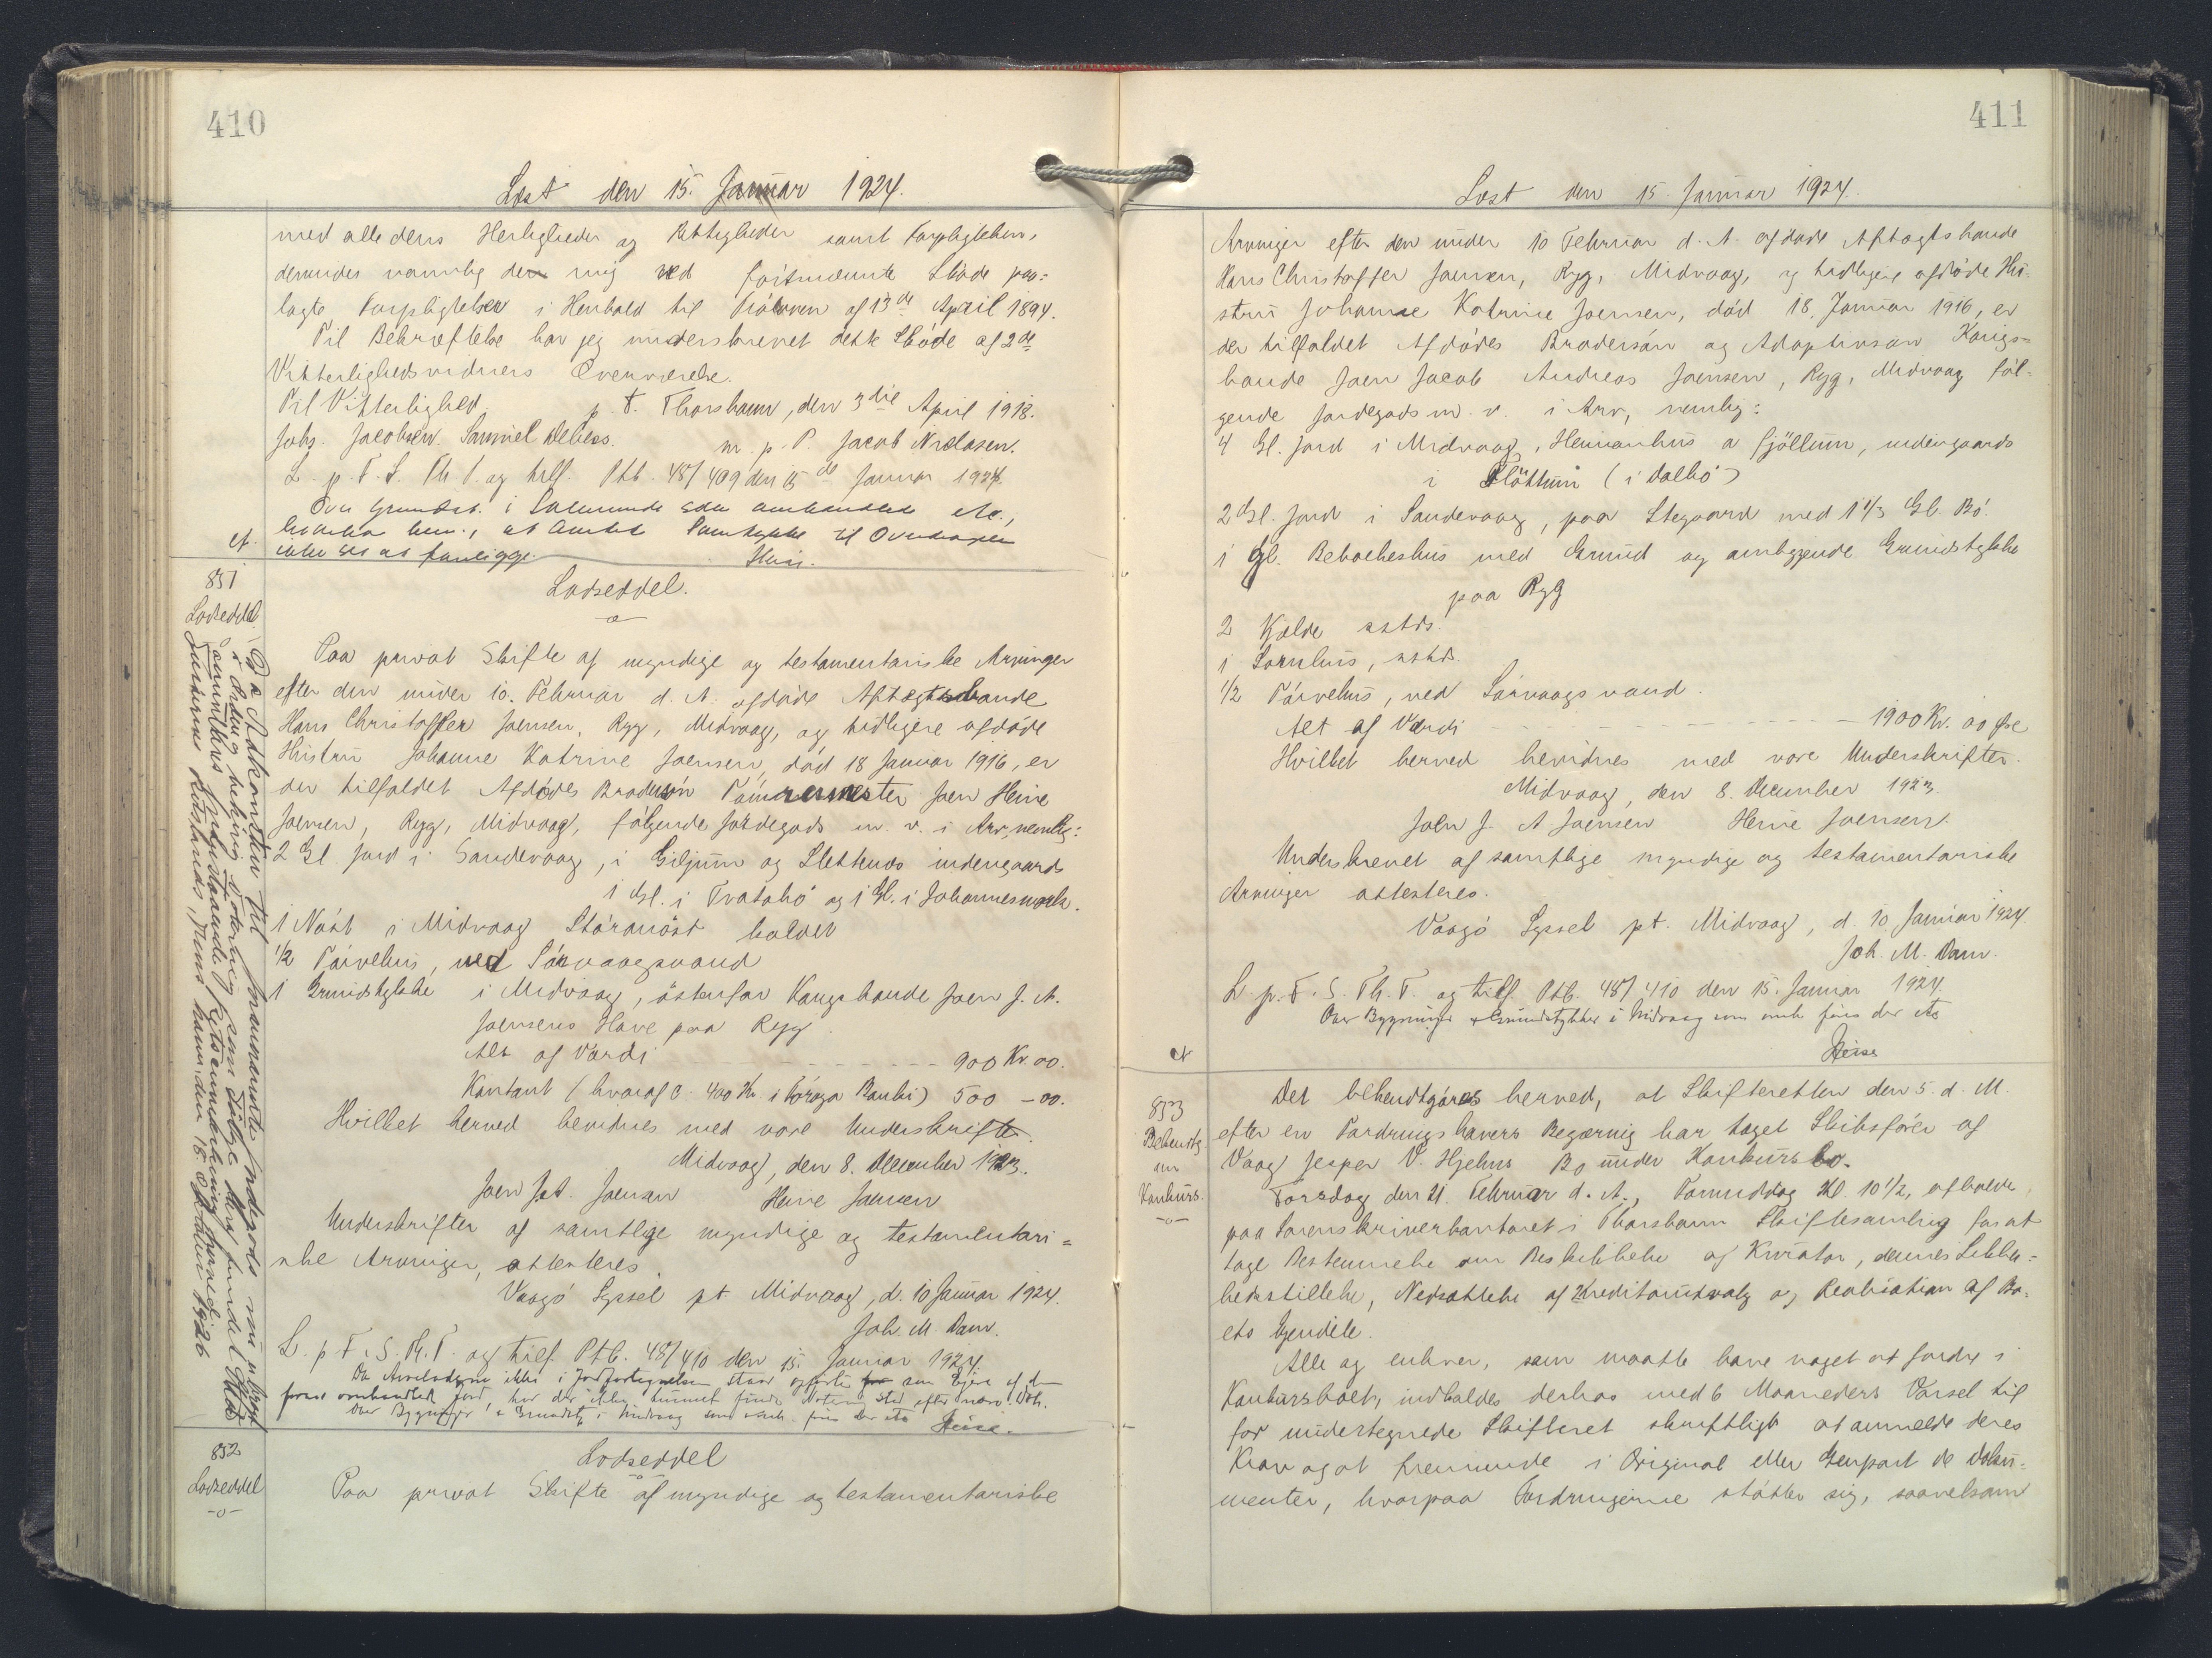 410
Læst den 15. Januar 1924.
med alle dens Herligheder og Rettigheder samt Forpligtelser,
derunder navnlig den mig ved förstnævnte Sköde paa=
lagte Forpligtelser i Henhold til Prøloven af 13de April 1894.
Til Bekræftelse har jeg underskrevet dette Sköde af 2de
Vitterlighedsvidners Overværelse.
Til Vitterlighed p. t. Thorshavn, den 3die April 1918.
Johs. Jacobsen. Samuel Debess. m. p. P. Jacob Nielasen.
L. p. F. S. Th. T. og tilf. Ptb. 48/409 den 15de Januar 1924.
Over Grundst. i som omhandlet etc.,
at Amtets Samtykke til Overdragelsen
ikke ses at foreligge. Heise.
851
Lodseddel.
Lodseddel.
Paa privat Skifte af myndige og testamentariske Arvinger
efter den under 10. Februar d. A. afdöde Aftægtsbonde
Hans Christoffer Joensen, Ryg, Midvaag, og tidligere afdöde
Hustru Johanne Katrine Joensen, död 18 Januar 1916, er
der tilfaldet Afdödes Brodersön Tömrermester Joen Heine
Joensen, Ryg, Midvaag, fölgende Jordegods m. v. i Arv, nemlig:
2 Gl. Jord i Sandevaag, i Giljum og Slettenes indengaards
1 Gl. i Tvatabö og 1 Gl. i Johannesmark.
1 Nöst i Midvaag Störanöst kaldet
1/2 Törvehus, ved Sörvaagsvand
1 Grundstykke i Midvaag, östenfor Kongsbonde Joen J. A.
Joensens Have paa Ryg.
Alt af Værdi - - - - - - 900 Kr. 00.
Kontant (hvoraf c. 400 Kr. i Föroya Banki) 500 - 00.
Hvilket herved bevidnes med vore Underskrifter.
Midvaag, den 8. December 1923.
Joen J. A. Joensen Heine Joensen
Underskrifter af samtlige myndige og testamentari=
ske Arvinger, attesteres.
Vaagö Syssel pt Midvaag, d. 10 Januar 1924.
Joh. M Dam.
L. p. F. S. Th. T. og tilf. Ptb. 48/410 den 15. Januar 1924.
Da Arveladerne ikke i Jordfortegnelsen staar opförte som Ejere af den
foran omhandlet Jord, har der ikke kunnet finde Notering Sted efter nærv. Dok.
Over Bygninger & Grundst. i Midvaag som omh. fins der etc Heise.
852
Lodseddel
-o-
Lodseddel
Paa privat Skifte af myndige og testamentariske
411
Læst den 15. Januar 1924.
Arvinger efter den under 10 Februar d. A. afdöde Aftægtsbonde
Hans Christoffer Joensen, Ryg, Midvaag, og tidligere afdöde Hu-
stru Johanne Katrine Joensen, död 18. Januar 1916, er
der tilfaldet Afdödes Brodersön og Adoptivsön Kongs=
bonde Joen Jacob Andreas Joensen, Ryg, Midvaag föl-
gende Jordegods m. v. i Arv, nemlig:
4 Gl. Jord i Midvaag, Heimanhus a fjöllum, indengaards
i Flöttum (i Dalbö)
2 Gl. Jord i Sandevaag, paa Stegaard med 1 1/3 Gl. Bö.
1 gl. Beboelseshus med Grund og omliggende Grundstykke
paa Ryg
2 Hjalde sstds.
1 Kornhus, sstds.
1/2 Törvehus, ved Sörvaagsvand.
Alt af Værdi - - - - - - - - 1900 Kr. 00 Øre
Hvilket herved bevidnes med vore Underskrifter.
Midvaag, den 8. December 1923.
Joen J. A Joensen Heine Joensen.
Underskrevet af samtlige myndige og testamentariske
Arvinger attesteres.
Vaagö Syssel pt. Midvaag, d. 10 Januar 1924.
Joh. M. Dam.
L. p. F. S. Th. T. og tilf. Ptb. 48/410 den 15. Januar 1924.
Over Bygninger & Grundstykker i Midvaag som omh fins der etc
Heise
853
Bekendtg
om
Konkurs.
-o-
Det bekendtgöres herved, at Skifteretten den 5. d. M.
efter en Fordringshavers Begæring har taget Skibsförer af
Vaag Jesper V. Hjelms Bo under Konkursbo.
Torsdag den 21. Februar d. A., Formiddag Kl. 10 1/2, afholdes
paa Sorenskriverkontoret i Thorshavn Skiftesamling for at
tage Bestemmelse om Beskikkelse af Kurator, dennes Sikker=
hedsstillelse, Nedsættelse af Kreditorudvalg og Realisation af Bo-
ets Ejendele.
Alle og enhver, som maatte have noget at fordre i
Konkursboet, indkaldes derhos med 6 Maaneders Varsel til
for undertegnede Skifteret skriftligt at anmelde deres
Krav og at fremsende i Original eller Genpart de Doku-
menter, hvorpaa Fordringerne stötter sig, saavelsom